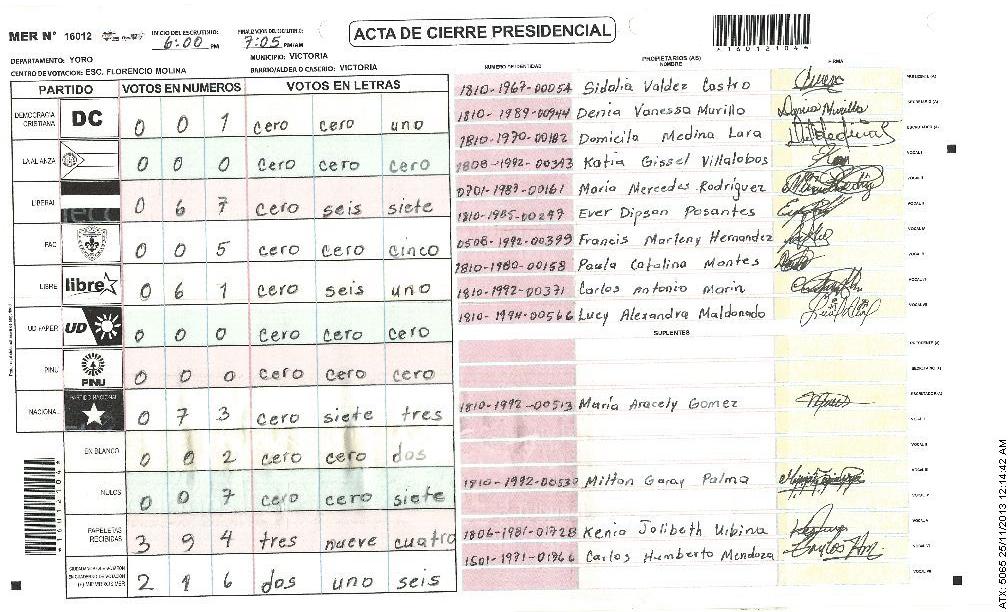 MER N° 16012 INICIO DEL ESCRUTINIO: 6:00 PM FINALIZACION DEL ESCRUTINIO: 7:05 PM/AM
ACTA DE CIERRE PRESIDENCIAL
16012104*
DEPARTAMENTO: YORO MUNICIPIO: VICTORIA
CENTRO DE VOTACION: ESC. FLORENCIO MOLINA BARRIO/ALDEA O CASERIO: VICTORIA
PARTIDO VOTOS EN NUMEROS VOTOS EN LETRAS
DEMOCRACIA CRISTIANA DC 0 0 1 cero cero uno
LA ALIANZA 0 0 0 cero cero cero
LIBERAL 0 6 7 cero seis siete
FAC 0 0 5 cero cero cinco
LIBRE libre 0 6 1 cero seis uno
UD FAPER UD 0 0 0 cero cero cero
PINU PINU 0 0 0 cero cero cero
NACIONAL PARTIDO NACIONAL 0 7 3 cero siete tres
EN BLANCO 0 0 2 cero cero dos
NULOS 0 0 7 cero cero siete
PAPELETAS RECIBIDAS 3 9 4 tres nueve cuatro
2 1 6 dos uno seis
NUMERO DE IDENTIDAD PROPIETARIOS (AS) NOMBRE FIRMA
1810-1967-00054 Sidalia Valdez Castro PRESIDENTE (A)
1810-1989-00944 Denia Vanessa Murillo Denia Murillo SECRETARIO (A)
1810-1970-00182 Domicila Medina Lara ESCRUTADOR (A)
1808-1992-00343 Katia Gissel Villalobos VOCAL I
0701-1987-00161 Maria Mercedes Rodríguez VOCAL II
1810-1985-00247 Ever Dipson Posantes VOCAL III
0508-1992-00399 Francis Marleny Hernandez VOCAL IV
1810-1980-00158 Paula Catalina Montes VOCAL V
1810-1992-00371 Carlos Antonio Marin VOCAL VI
1810-1994-00566 Lucy Alexandra Maldonado VOCAL VII
SUPLENTES
SECRETARIO (A)
1810-1992-00513 María Aracely Gomez ESCRUTADOR (A)
VOCAL I
VOCAL II
1810-1992-00530 Milton Garay Palma VOCAL III
1806-1981-01728 Kenia Jolibeth Urbina VOCAL V
1501-1971-01966 Carlos Humberto Mendoza VOCAL VI
VOCAL VII
ATX: 5065 25/11/2013 12:14:42 AM